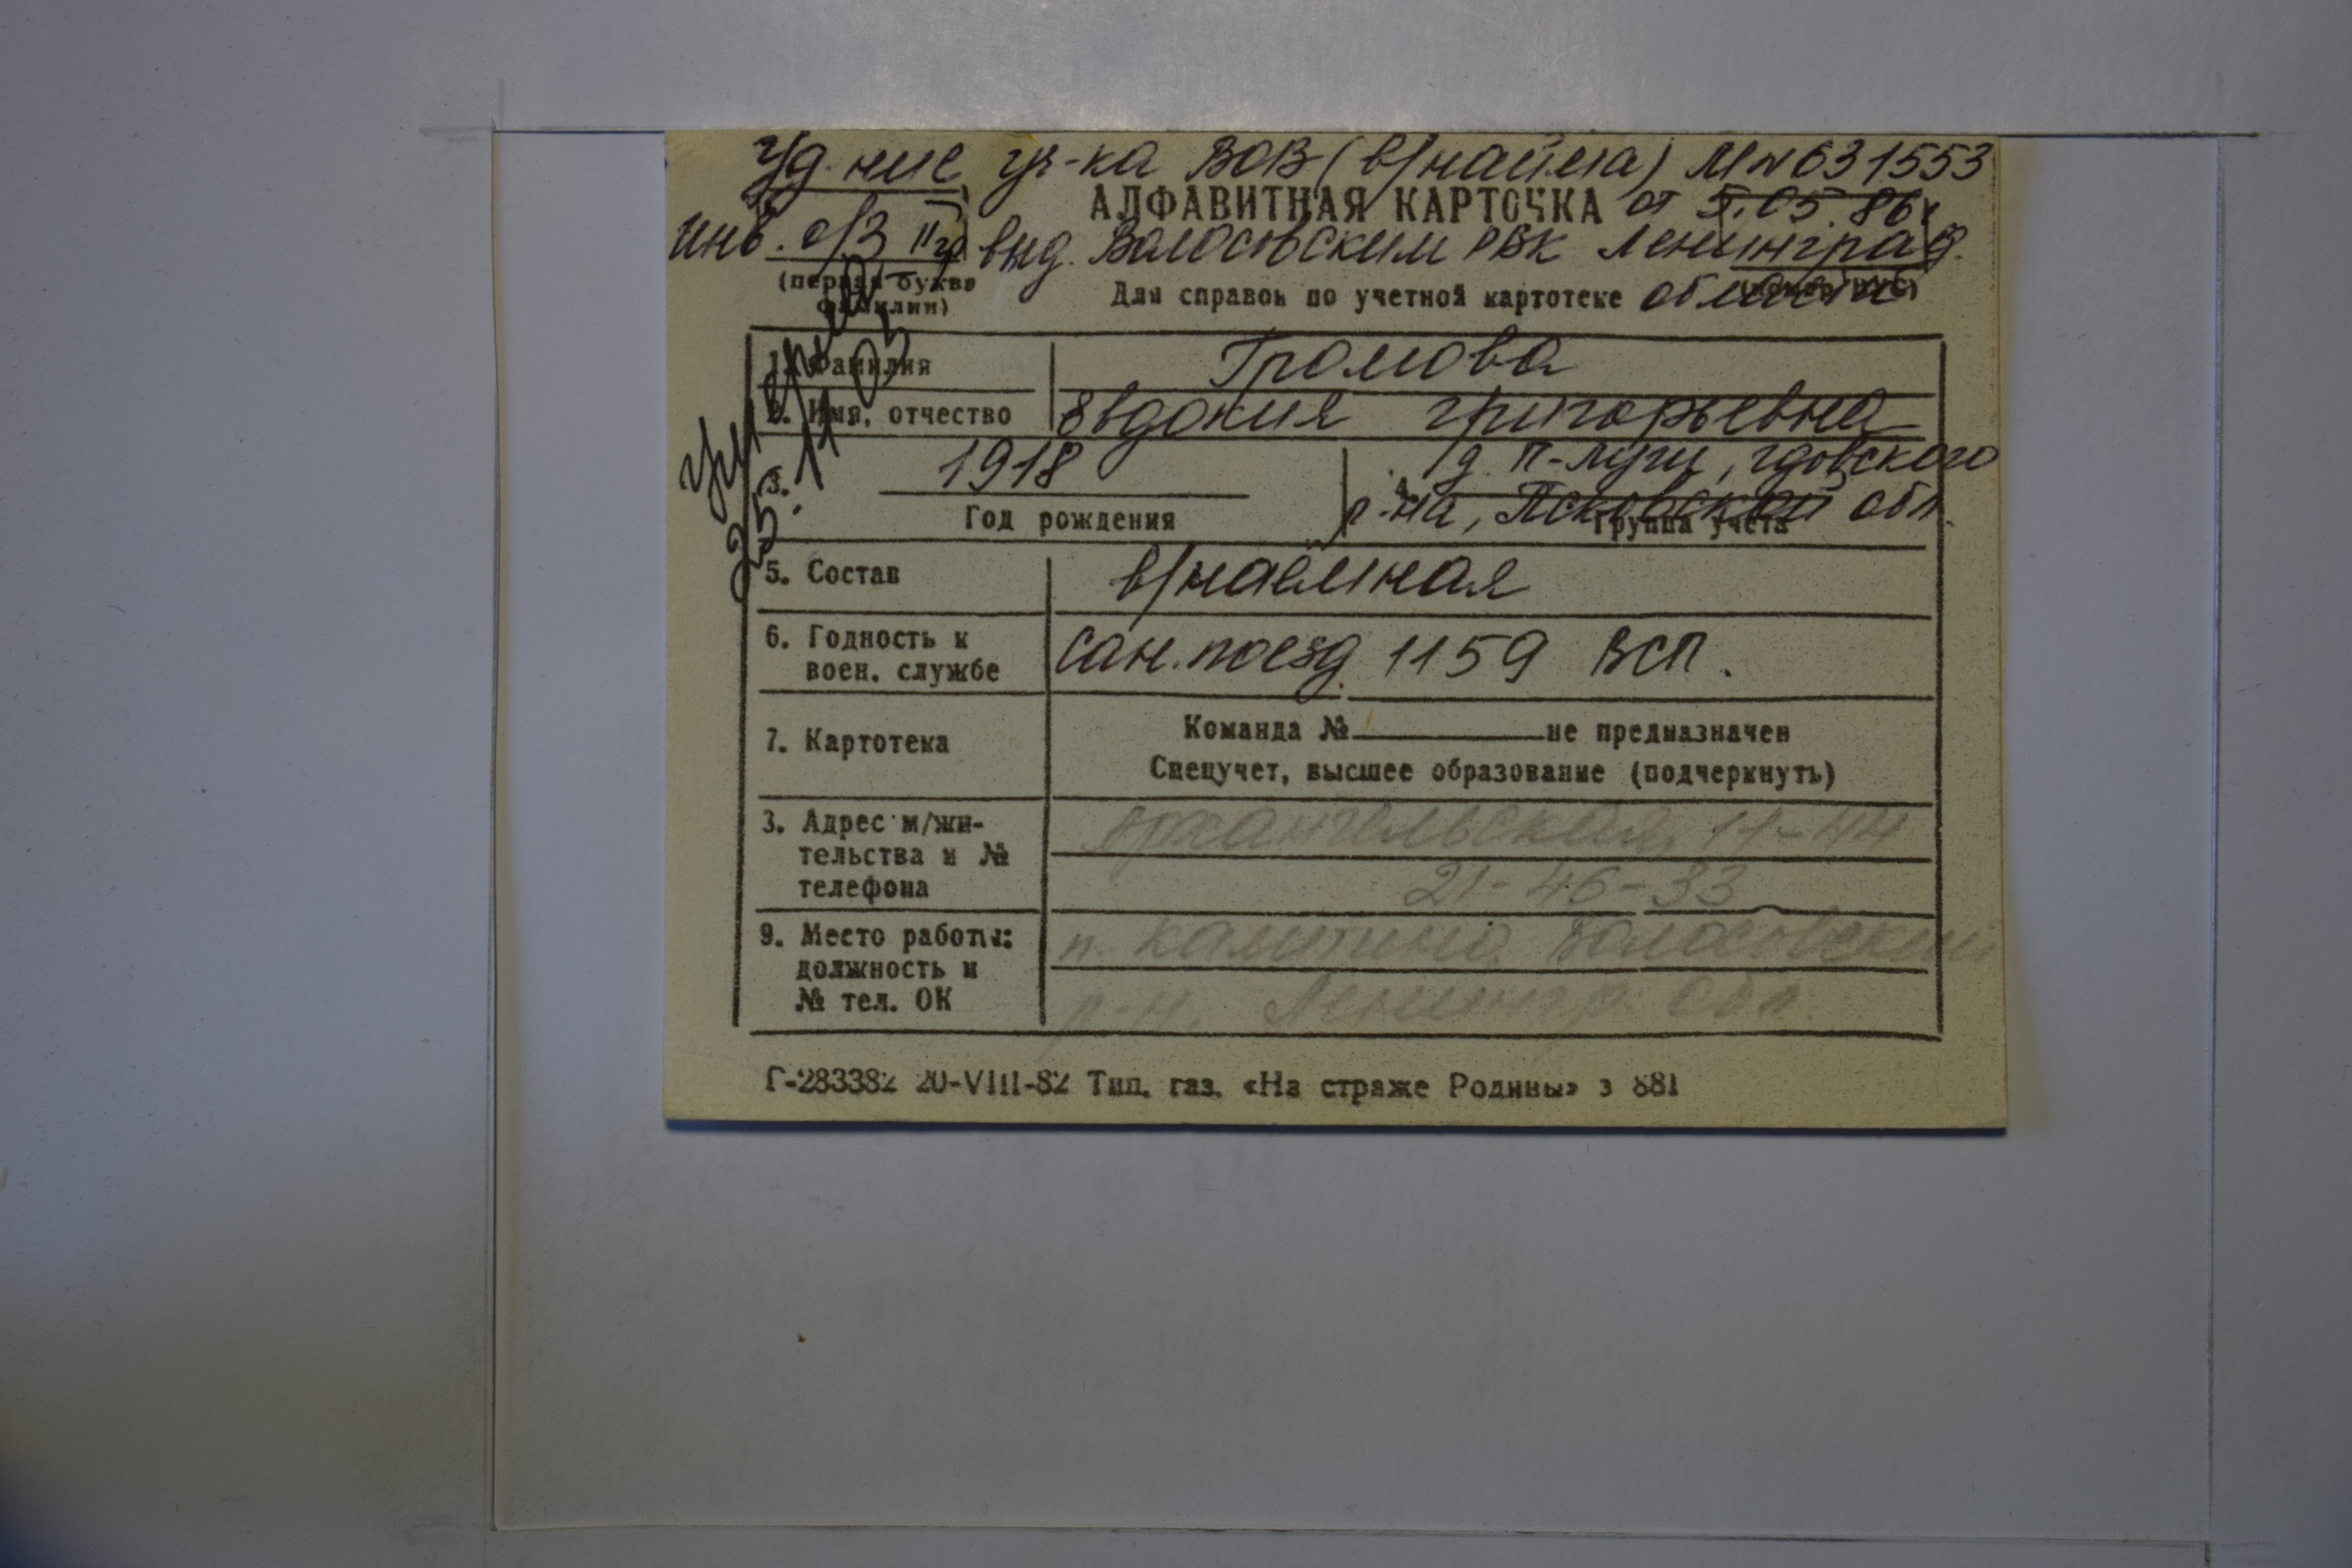 Уд-ние уч-ка ВОВ (в/найма) М№ 631553
АЛФАВИТНАЯ КАРТОЧКА от 5.05.86г
инв. о/з IIгр выд. Волосовским РВК Ленинград.
(первая буква фамилии)
Для справок по учетной картотеке области
умерла
25.11.03
1. Фамилия Громова
2. Имя, отчество Евдокия Григорьевна
3. 1918
Год рождения
4. д. п-луги, Гдовского
р-на, Псковской обл.
Группа учета
5. Состав в/наёмная
6. Годность к воен. службе сан.поезд 1159 ВСП.
7. Картотека
Команда № не предназначен
Спецучет, высшее образование (подчеркнуть)
3. Адрес м/жи-
тельства и №
телефона
Архангельская, 11-44
21-46-33
9. Место работы:
должность и
№ тел. ОК
п. Калитино, Волосовский
р-н. Ленингр. обл.
Г-283382 20-VIII-82 Тип. газ. «На страже Родины» з 881